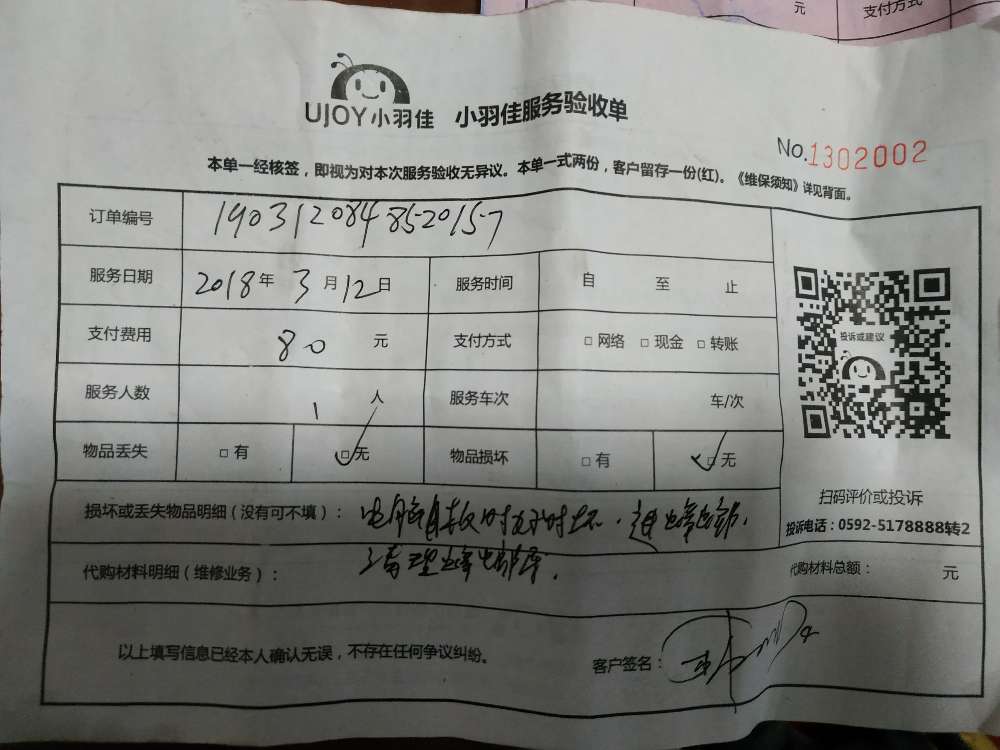 元 支付方式
UJOY小羽佳 小羽佳服务验收单
No.1302002
本单一经核签，即视为对本次服务验收无异议。本单一式两份，客户留存一份(红)。《维保须知》详见背面。
订单编号 1903120848520157
服务日期 2018年 3月12日 服务时间 自 至 止
支付费用 80 元 支付方式 □ 网络 □ 现金 □ 转账
服务人数 1 人 服务车次 车/次
物品丢失 □ 有 □ 无 物品损坏 □ 有 □ 无
投诉或建议
扫码评价或投诉
投诉电话：0592-5178888转2
损坏或丢失物品明细（没有可不填）：
代购材料明细（维修业务）： 清理 代购材料总额： 元
以上填写信息已经本人确认无误，不存在任何争议纠纷。 客户签名：